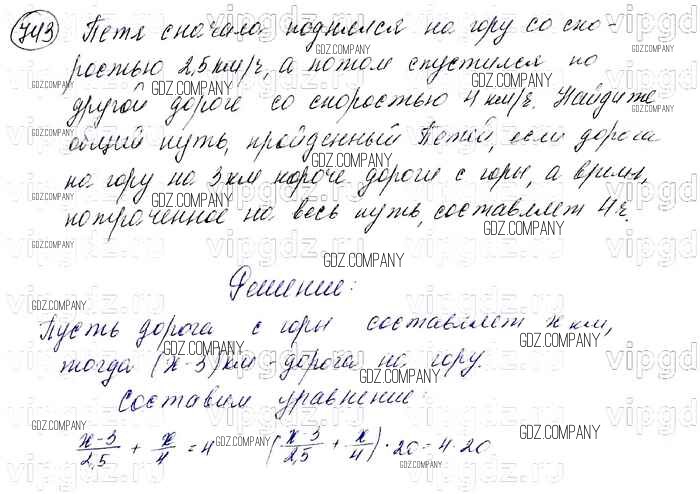 743 Петя сначала поднялся на гору со ско-
ростью 2,5 км/ч, а потом спустился по
другой дороге со скоростью 4 км/ч. Найдите
общий путь, пройденный Петей, если дорога
на гору на 3 км короче дороги с горы, а время,
потраченное на весь путь, составляет 4 ч.
Решение:
Пусть дорога с горы составляет x км,
тогда (x-3) км - дорога на гору.
Составим уравнение:
(x-3)/2,5 + x/4 = 4 ((x-3)/2,5 + x/4) · 20 = 4 · 20
GDZ.COMPANY
vipgdz.ru